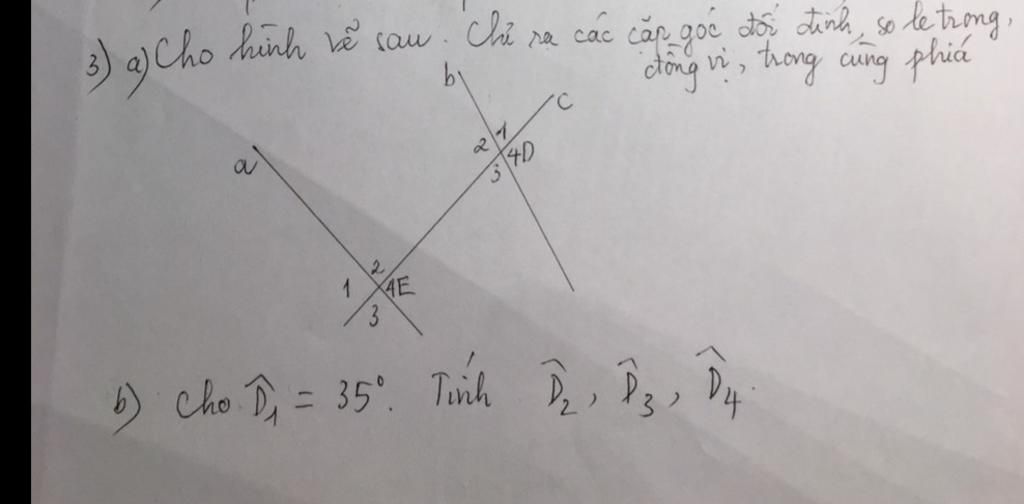 3) a) Cho hình vẽ sau. Chỉ ra các cặp góc đối đỉnh, so le trong,
đồng vị, trong cùng phiá
b
c
a
1
2 4D
3
2
1 4E
3
b) Cho D̂₁ = 35°. Tính D̂₂, D̂₃, D̂₄.